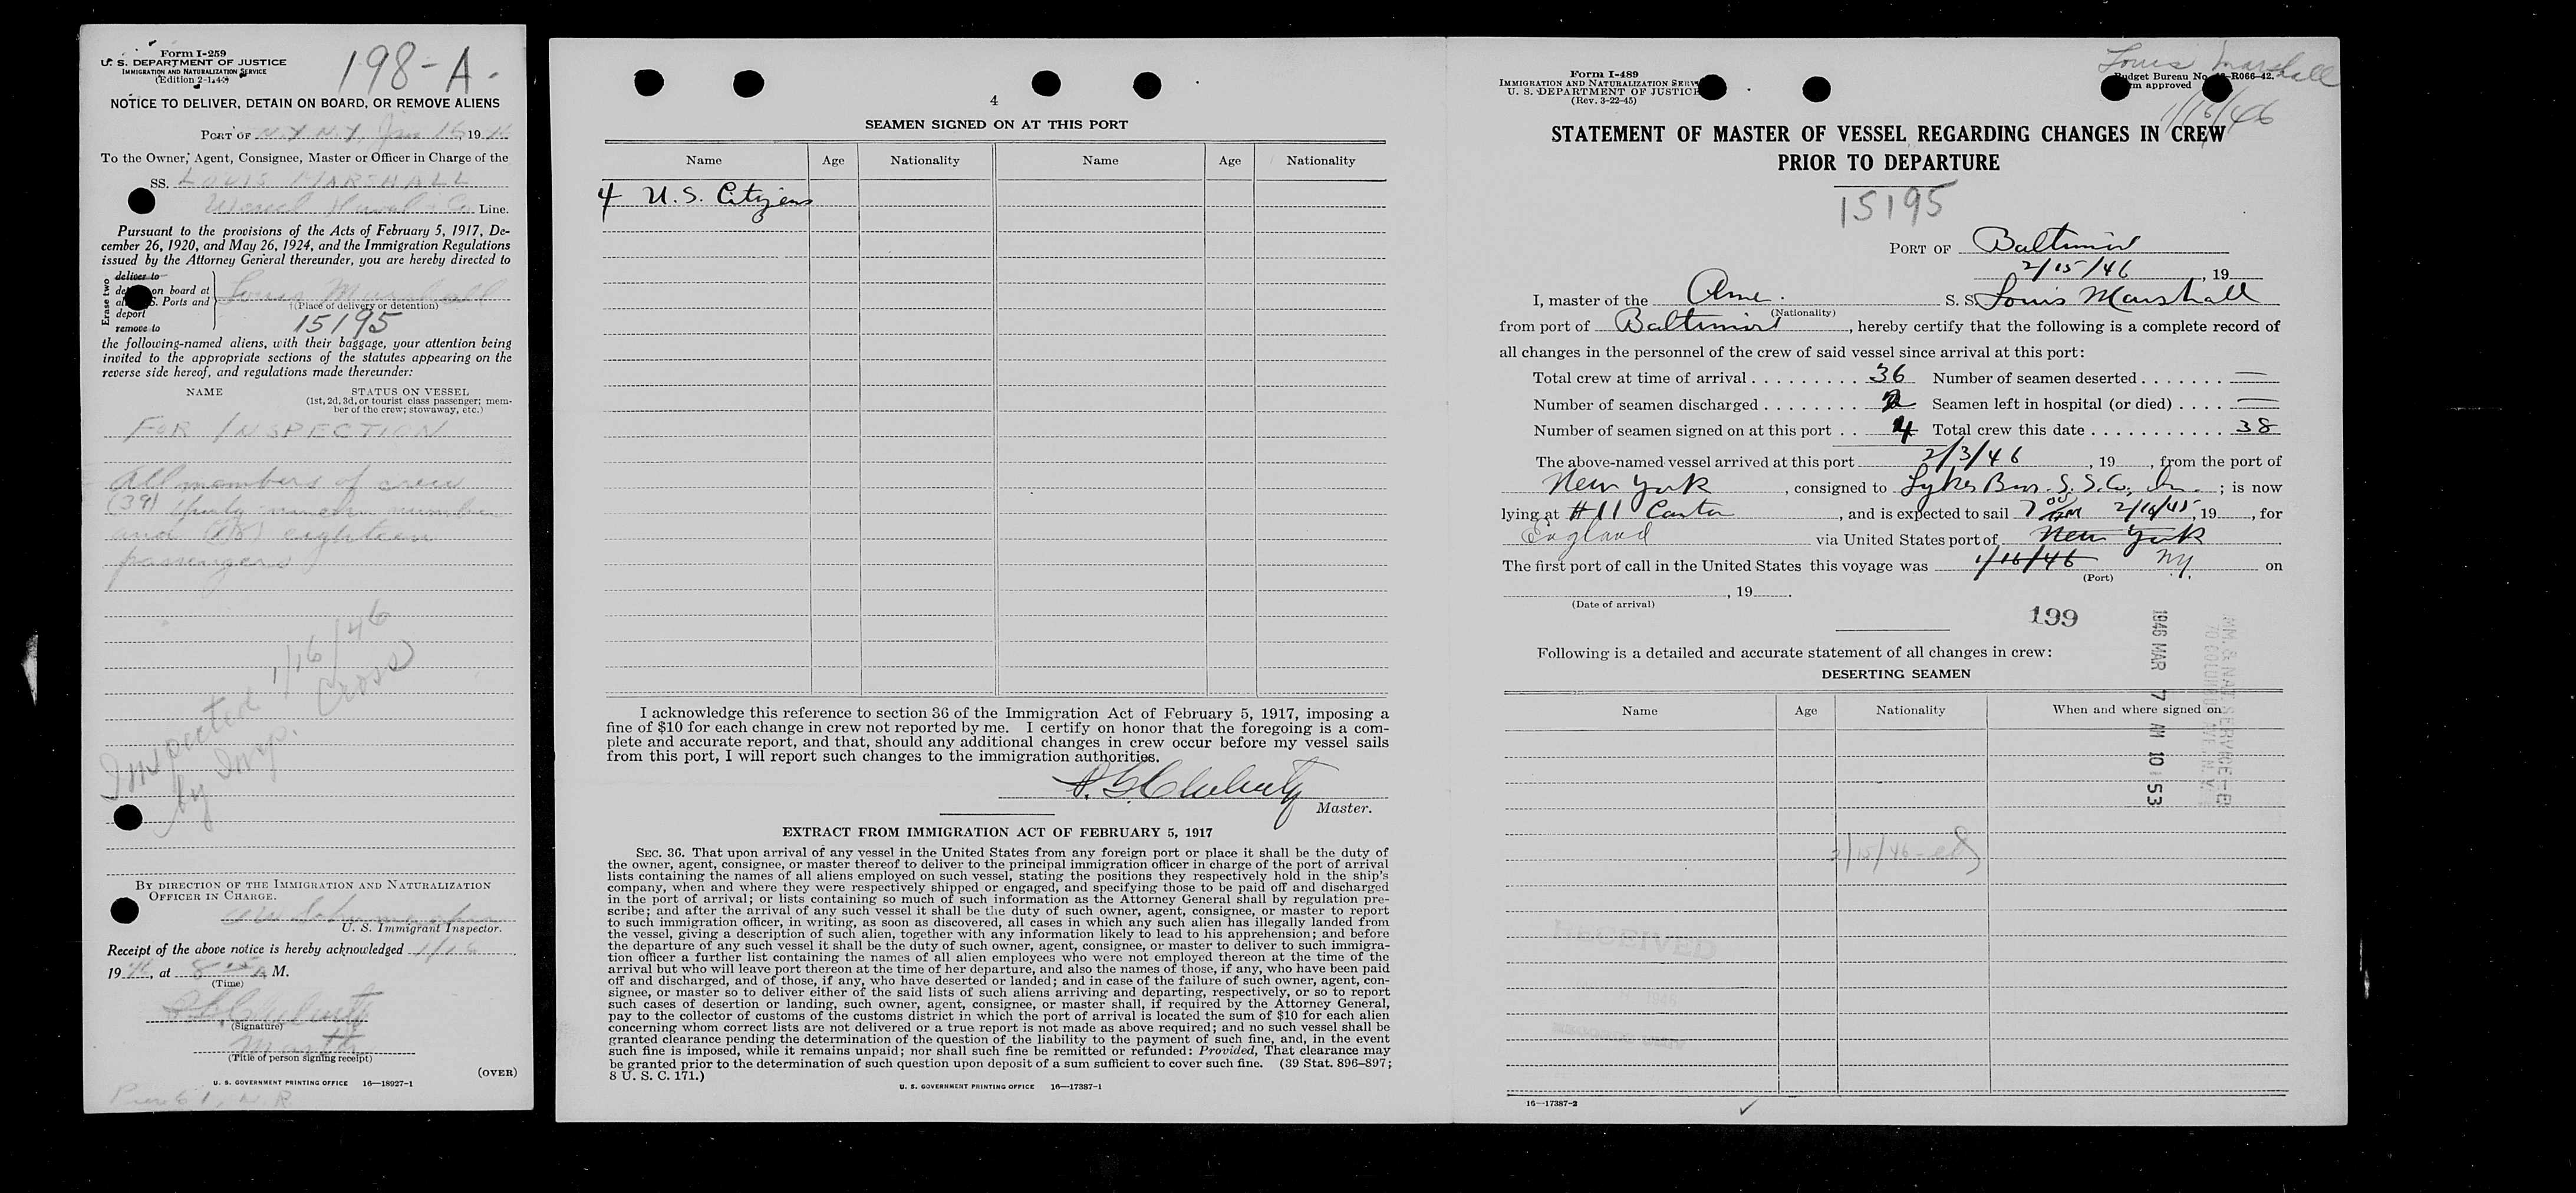 Form I-259
U. S. DEPARTMENT OF JUSTICE
IMMIGRATION AND NATURALIZATION SERVICE
(Edition 2-1-43)
198-A.
NOTICE TO DELIVER, DETAIN ON BOARD, OR REMOVE ALIENS
PORT OF N.Y. N.Y. Jan 15, 19
To the Owner, Agent, Consignee, Master or Officer in Charge of the
SS. LOUIS MARSHALL
Line.
Pursuant to the provisions of the Acts of February 5, 1917, De-
cember 26, 1920, and May 26, 1924, and the Immigration Regulations
issued by the Attorney General thereunder, you are hereby directed to
Erase two
deliver to
on board at
S. Ports and
deport
remove to
Louis Marshall
(Place of delivery or detention)
15195
the following-named aliens, with their baggage, your attention being
invited to the appropriate sections of the statutes appearing on the
reverse side hereof, and regulations made thereunder:
NAME STATUS ON VESSEL
(1st, 2d, 3d, or tourist class passenger; mem-
ber of the crew; stowaway, etc.)
FOR INSPECTION
All members of crew
(39) thirty nine in number
and (18) eighteen
passengers
Inspected 1/16/46
by Insp. Cross
BY DIRECTION OF THE IMMIGRATION AND NATURALIZATION
OFFICER IN CHARGE.
U. S. Immigrant Inspector.
Receipt of the above notice is hereby acknowledged 1/16
19 46, at 8 A M.
(Time)
(Signature)
Master
(Title of person signing receipt)
(OVER)
U. S. GOVERNMENT PRINTING OFFICE 16—18927-1
Pier 61, N.R.
4
SEAMEN SIGNED ON AT THIS PORT
Name Age Nationality Name Age Nationality
4 U.S. Citizens
I acknowledge this reference to section 36 of the Immigration Act of February 5, 1917, imposing a
fine of $10 for each change in crew not reported by me. I certify on honor that the foregoing is a com-
plete and accurate report, and that, should any additional changes in crew occur before my vessel sails
from this port, I will report such changes to the immigration authorities.
Master.
EXTRACT FROM IMMIGRATION ACT OF FEBRUARY 5, 1917
SEC. 36. That upon arrival of any vessel in the United States from any foreign port or place it shall be the duty of
the owner, agent, consignee, or master thereof to deliver to the principal immigration officer in charge of the port of arrival
lists containing the names of all aliens employed on such vessel, stating the positions they respectively hold in the ship's
company, when and where they were respectively shipped or engaged, and specifying those to be paid off and discharged
in the port of arrival; or lists containing so much of such information as the Attorney General shall by regulation pre-
scribe; and after the arrival of any such vessel it shall be the duty of such owner, agent, consignee, or master to report
to such immigration officer, in writing, as soon as discovered, all cases in which any such alien has illegally landed from
the vessel, giving a description of such alien, together with any information likely to lead to his apprehension; and before
the departure of any such vessel it shall be the duty of such owner, agent, consignee, or master to deliver to such immigra-
tion officer a further list containing the names of all alien employees who were not employed thereon at the time of the
arrival but who will leave port thereon at the time of her departure, and also the names of those, if any, who have been paid
off and discharged, and of those, if any, who have deserted or landed; and in case of the failure of such owner, agent, con-
signee, or master so to deliver either of the said lists of such aliens arriving and departing, respectively, or so to report
such cases of desertion or landing, such owner, agent, consignee, or master shall, if required by the Attorney General,
pay to the collector of customs of the customs district in which the port of arrival is located the sum of $10 for each alien
concerning whom correct lists are not delivered or a true report is not made as above required; and no such vessel shall be
granted clearance pending the determination of the question of the liability to the payment of such fine, and, in the event
such fine is imposed, while it remains unpaid; nor shall such fine be remitted or refunded: Provided, That clearance may
be granted prior to the determination of such question upon deposit of a sum sufficient to cover such fine. (39 Stat. 896-897;
8 U. S. C. 171.)
U. S. GOVERNMENT PRINTING OFFICE 16—17387-1
Form I-489
IMMIGRATION AND NATURALIZATION SERV
U. S. DEPARTMENT OF JUSTICE
(Rev. 3-22-45)
Louis Marshall
Budget Bureau No. -R066-42.
m approved
1/16/46
STATEMENT OF MASTER OF VESSEL REGARDING CHANGES IN CREW
PRIOR TO DEPARTURE
15195
PORT OF Baltimore
2/15/46, 19
I, master of the Ame. S. S. Louis Marshall
(Nationality)
from port of Baltimore, hereby certify that the following is a complete record of
all changes in the personnel of the crew of said vessel since arrival at this port:
Total crew at time of arrival 36 Number of seamen deserted —
Number of seamen discharged 2 Seamen left in hospital (or died) —
Number of seamen signed on at this port 4 Total crew this date 38
The above-named vessel arrived at this port 2/3/46, 19, from the port of
New York, consigned to Lykes Bros. S. S. Co., Inc.; is now
lying at #11 Canton, and is expected to sail 7 00 AM 2/16/45, 19, for
England via United States port of New York
The first port of call in the United States this voyage was 1/16/46 NY. on
(Port)
, 19.
(Date of arrival)
199
1946 MAR 7 AM 10 53
IMM. & NAT. SERVICE
70 COLUMBUS AVE. N.Y.
Following is a detailed and accurate statement of all changes in crew:
DESERTING SEAMEN
Name Age Nationality When and where signed on
2/15/46
RECEIVED
1946
16—17387-2